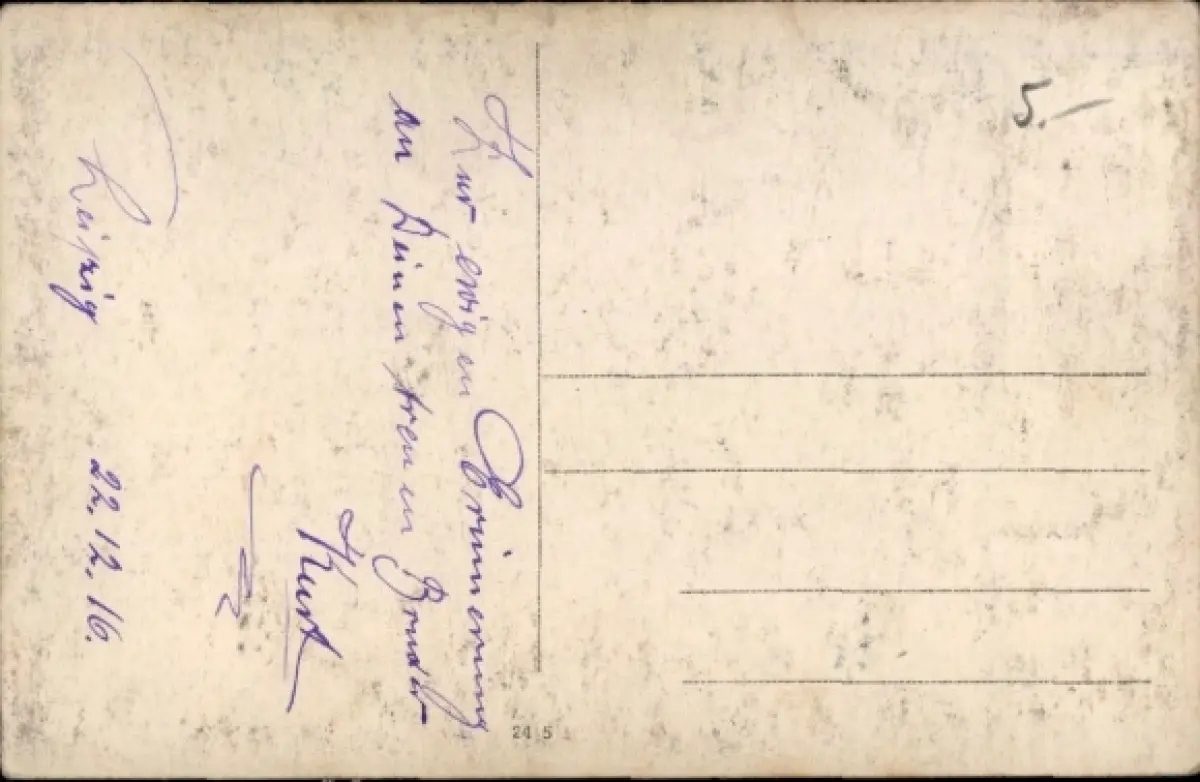 Zur ewigen Erinnerung
an Deinen treuen Bruder
Kurt
Leipzig 22.12.16.
5.–
24 5